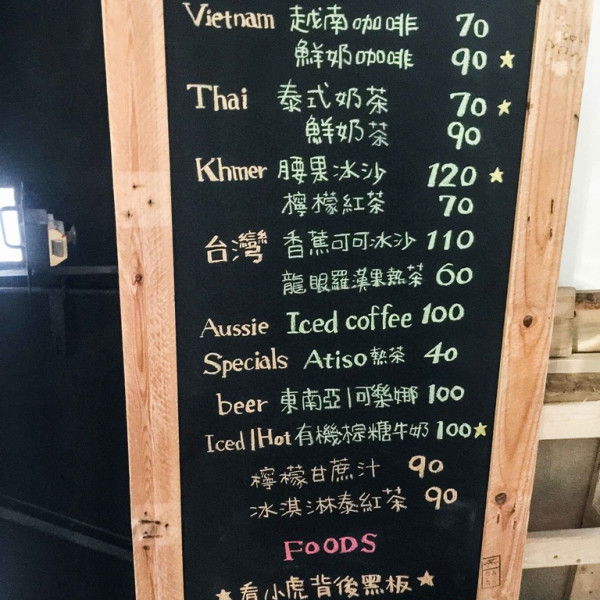 Vietnam 越南咖啡 70
鮮奶咖啡 90 ★
Thai 泰式奶茶 70 ★
鮮奶茶 90
Khmer 腰果冰沙 120 ★
檸檬紅茶 70
台灣 香蕉可可冰沙 110
龍眼羅漢果熱茶 60
Aussie Iced coffee 100
Specials Atiso 熱茶 40
beer 東南亞|可樂娜 100
Iced|Hot 有機棕糖牛奶 100 ★
檸檬甘蔗汁 90
冰淇淋泰紅茶 90
FOODS
★看小虎背後黑板★